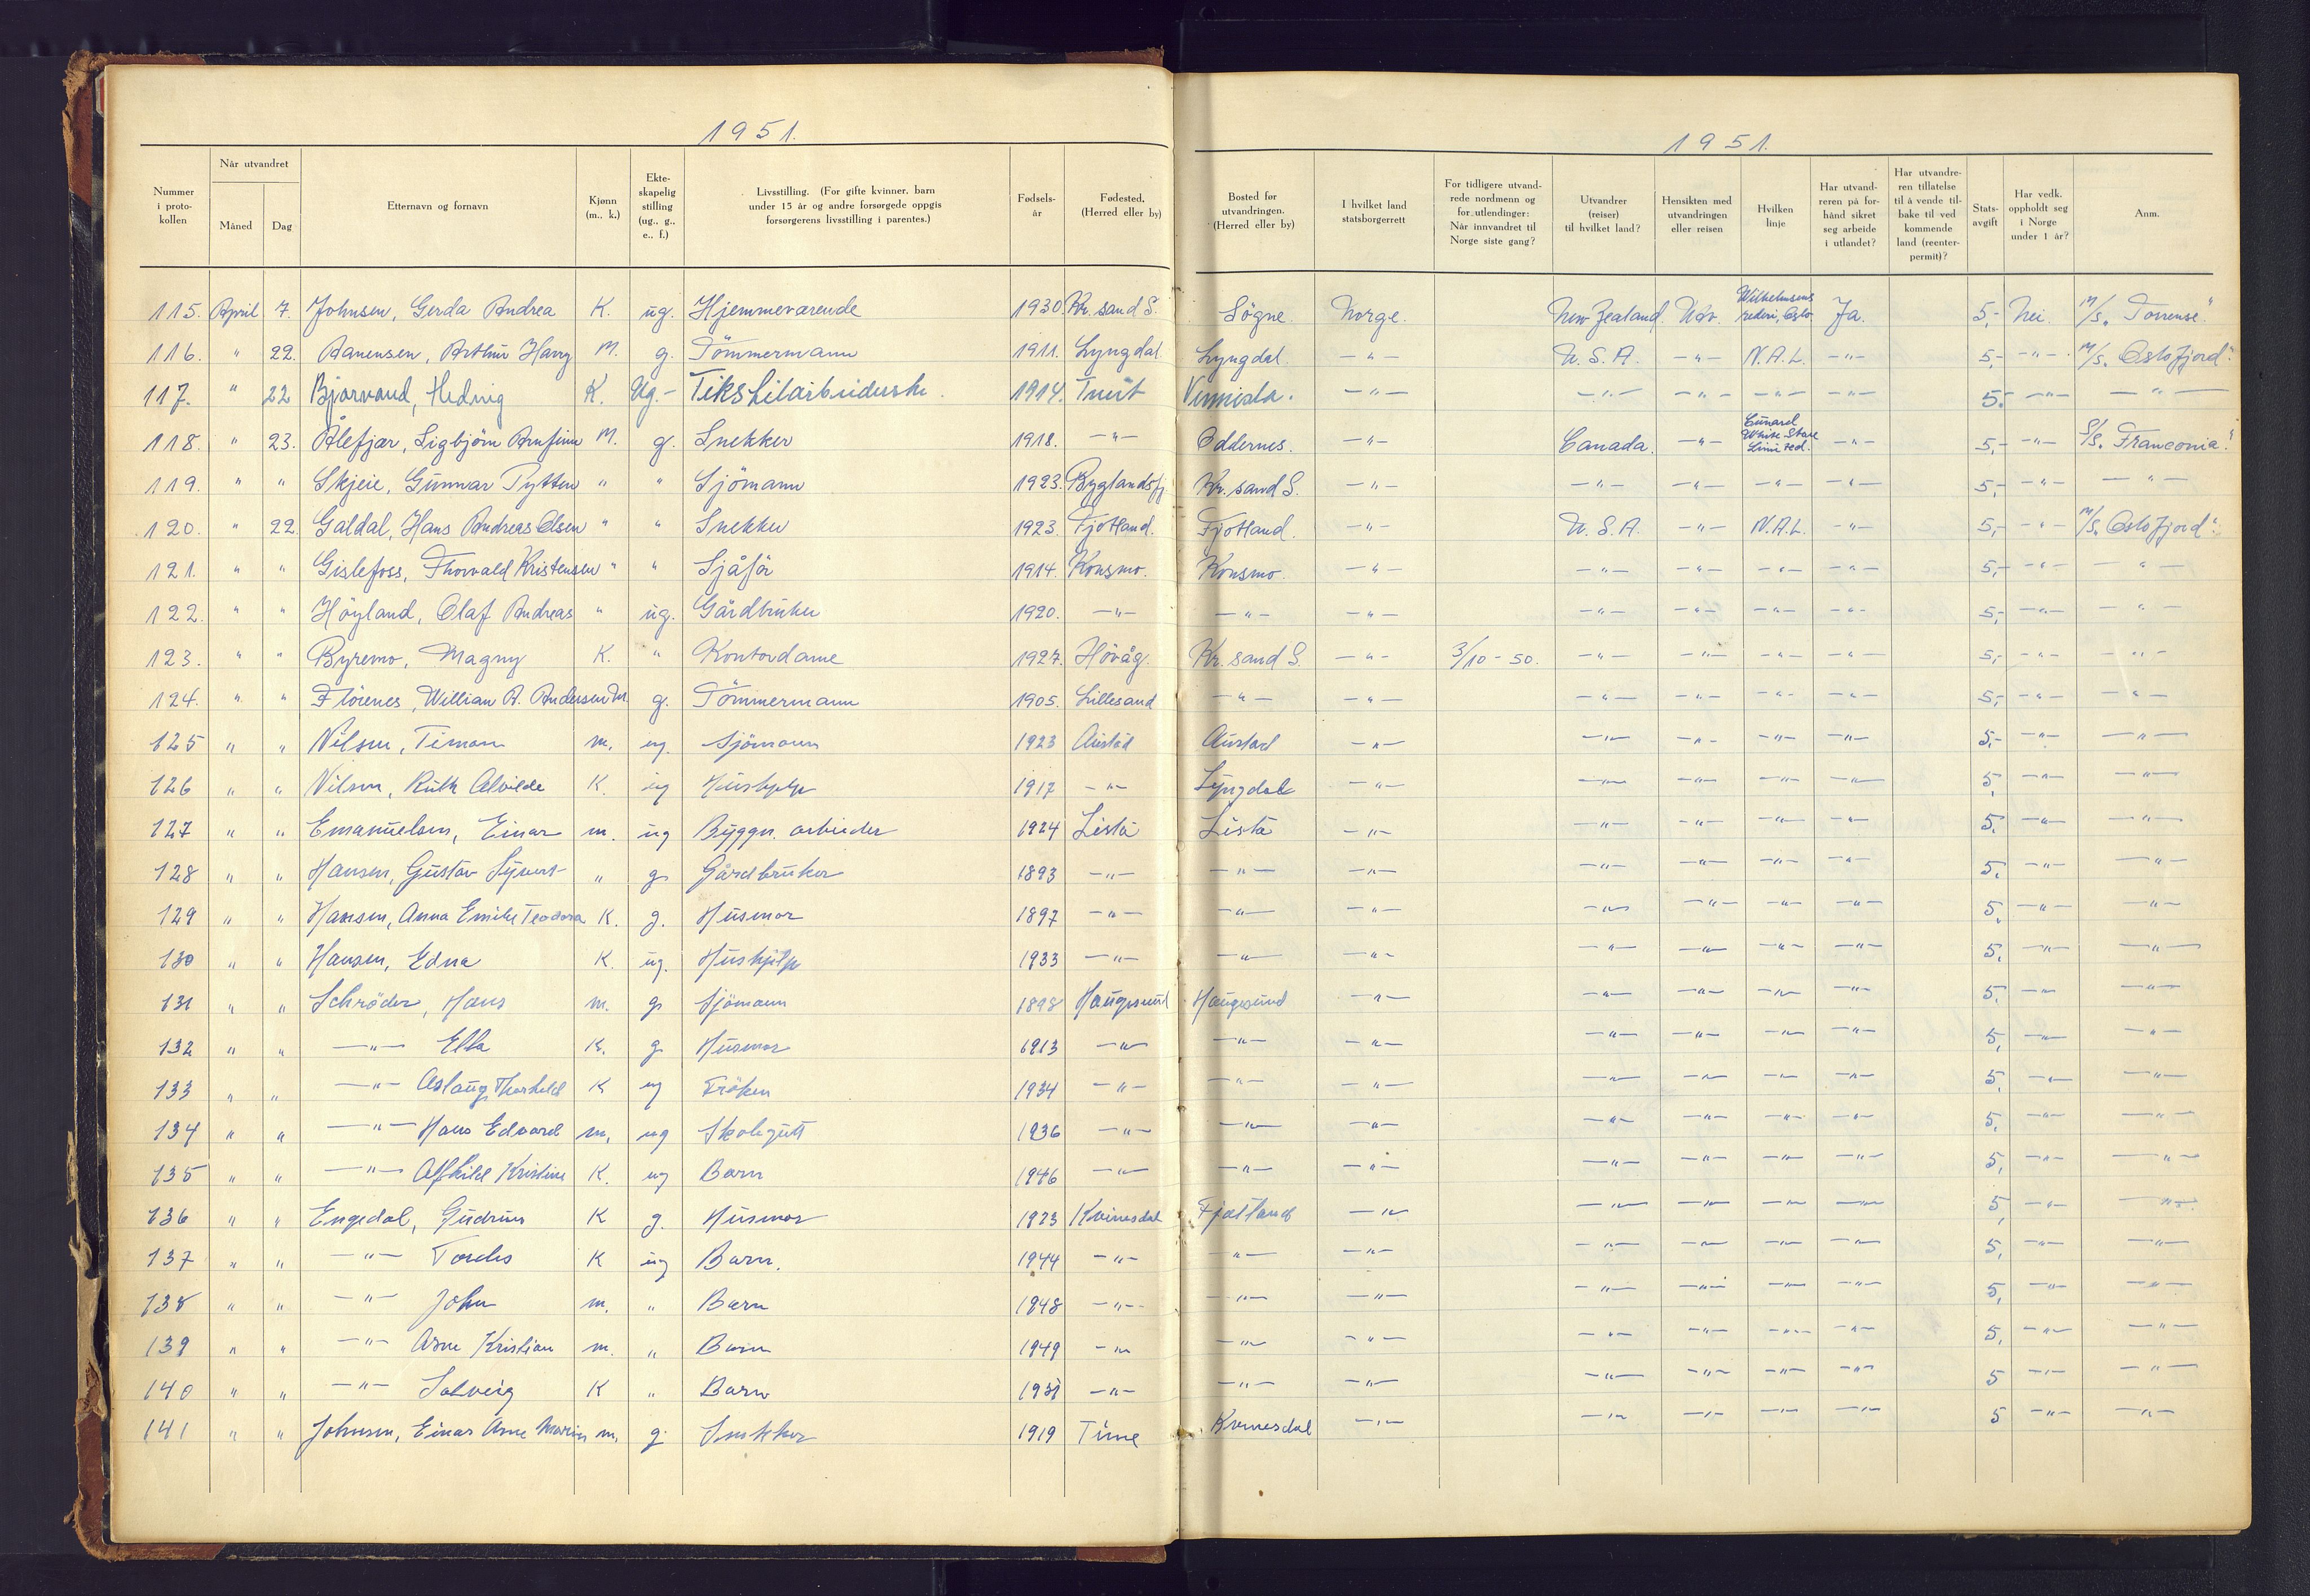 1951.
Nummer i proto-kollen | Når utvandret Måned | Dag | Etternavn og fornavn | Kjønn (m., k.) | Ekte-skapelig stilling (ug., g., e., f.) | Livsstilling. (For gifte kvinner, barn under 15 år og andre forsørgede oppgis forsørgerens livsstilling i parentes.) | Fødsels-år | Fødested. (Herred eller by) | Bosted før utvandringen. (Herred eller by) | I hvilket land statsborgerrett | For tidligere utvand-rede nordmenn og for utlendinger: Når innvandret til Norge siste gang? | Utvandrer (reiser) til hvilket land? | Hensikten med utvandringen eller reisen | Hvilken linje | Har utvand-reren på for-hånd sikret seg arbeide i utlandet? | Har utvandre-ren tillatelse til å vende til-bake til ved kommende land (reenter-permit)? | Stats-avgift | Har vedk. oppholdt seg i Norge under 1 år? | Anm.
1951.
115. April 7. Johnsen, Gerda Andrea K. ug. Hjemmeværende 1930. Kr.sand S. Søgne. Norge. New Zealand. Udv. Wilhelmsens rederi, Oslo Ja. 5,- Nei. M/S. "Torrense"
116. " 22. Aanensen, Arthur Harry M. g. Tømmermann 1911. Lyngdal. Lyngdal. -"- U.S.A. -"- N.A.L. -"- 5,- -"- M/S. "Oslofjord"
117. " 22 Bjorvand, Hedvig K. Ug.- Tekstilarbeiderske. 1914. Tveit Vennesla. -"- -"- -"- -"- -"- 5,- -"- -"-
118. " 23. Ålefjær, Sigbjørn Arnfinn M. g. Snekker 1918. -"- Oddernes. -"- Canada. -"- Cunard White Stare Limited. -"- 5,- -"- S/S. "Franconia"
119. " " Skjeie, Gunnar Tytten " " Sjømann 1923. Byglandsfj. Kr.sand S. -"- -"- -"- -"- -"- 5,- -"- -"-
120. " 22. Galdal, Hans Andreas Olsen " " Snekker 1923. Fjotland. Fjotland. -"- U.S.A. -"- N.A.L. -"- 5,- -"- M/S. "Oslofjord"
121. " " Gislefoss, Thorvald Kristensen " " Sjåfør 1914. Konsmo. Konsmo. -"- -"- -"- -"- -"- 5,- -"- -"-
122. " " Høyland, Olaf Andreas " ug. Gårdbruker 1920. -"- -"- -"- -"- -"- -"- -"- 5,- -"- -"-
123. " " Byremo, Magny K. " Kontordame 1927. Høvåg. Kr.sand S. -"- 3/10-50. -"- -"- -"- -"- 5,- -"- -"-
124. " " Florenes, William A. Andersen M. g. Tømmermann 1905. Lillesand -"- -"- -"- -"- -"- -"- 5,- -"- -"-
125 " " Nilsen, Timan m. ug. Sjømann 1923 Austad Austad -"- -"- -"- -"- -"- 5,- -"- -"-
126 " " Nilsen, Ruth Alvilde K. ug Hushjelp 1917 -"- Lyngdal -"- -"- -"- -"- -"- 5, -"- -"-
127 " " Emanuelsen, Einar m. ug Byggn. arbeider 1924 Lista Lista -"- -"- -"- -"- -"- 5, -"- -"-
128 " " Hansen, Gustav Syvert " g Gårdbruker 1893 -"- -"- -"- -"- -"- -"- -"- 5, -"- -"-
129 " " Hansen, Anna Emilie Teodora K. g. Husmor 1897 -"- -"- -"- -"- -"- -"- -"- 5, -"- -"-
130 " " Hansen, Edna K. ug. Hushjelp 1933 -"- -"- -"- -"- -"- -"- -"- 5, -"- -"-
131 " " Schrøder, Hans m. g Sjømann 1898 Haugesund Haugesund -"- -"- -"- -"- -"- 5, -"- -"-
132 " " -"- Ella K. g Husmor 1913 -"- -"- -"- -"- -"- -"- -"- 5, -"- -"-
133 " " -"- Aslaug Thorhild K ug Frøken 1934 -"- -"- -"- -"- -"- -"- -"- 5, -"- -"-
134 " " -"- Hans Edvard m. ug Skolegutt 1936 -"- -"- -"- -"- -"- -"- -"- 5, -"- -"-
135 " " -"- Alfhild Kristine K. ug Barn 1946 -"- -"- -"- -"- -"- -"- -"- 5, -"- -"-
136 " " Engedal, Gudrun K g. Husmor 1923 Kvinesdal Fjotland -"- -"- -"- -"- -"- 5, -"- -"-
137 " " -"- Tordis K ug Barn. 1944 -"- -"- -"- -"- -"- -"- -"- 5, -"- -"-
138 " " -"- John m. " Barn 1948 -"- -"- -"- -"- -"- -"- -"- 5, -"- -"-
139 " " -"- Arne Kristian m. " Barn 1949 -"- -"- -"- -"- -"- -"- -"- 5, -"- -"-
140 " " -"- Solveig K " Barn -"- -"- -"- -"- -"- -"- -"- 5 -"- -"-
141 " " Johnsen, Einar Arne Marius m. g Snekker 1919 Time Kvinesdal -"- -"- -"- -"- -"- 5 -"- -"-